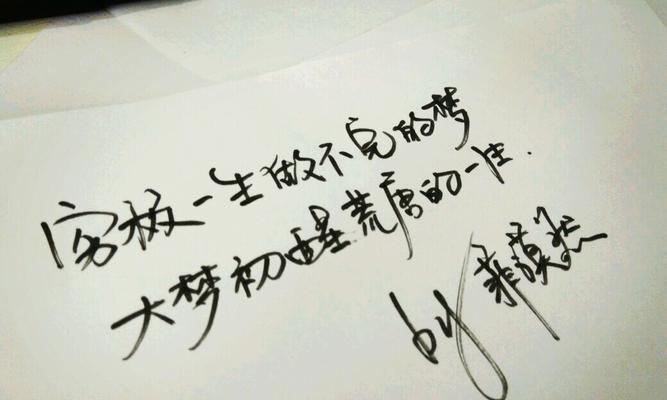 穷极一生做不完的梦
大梦初醒荒唐的一生.
by